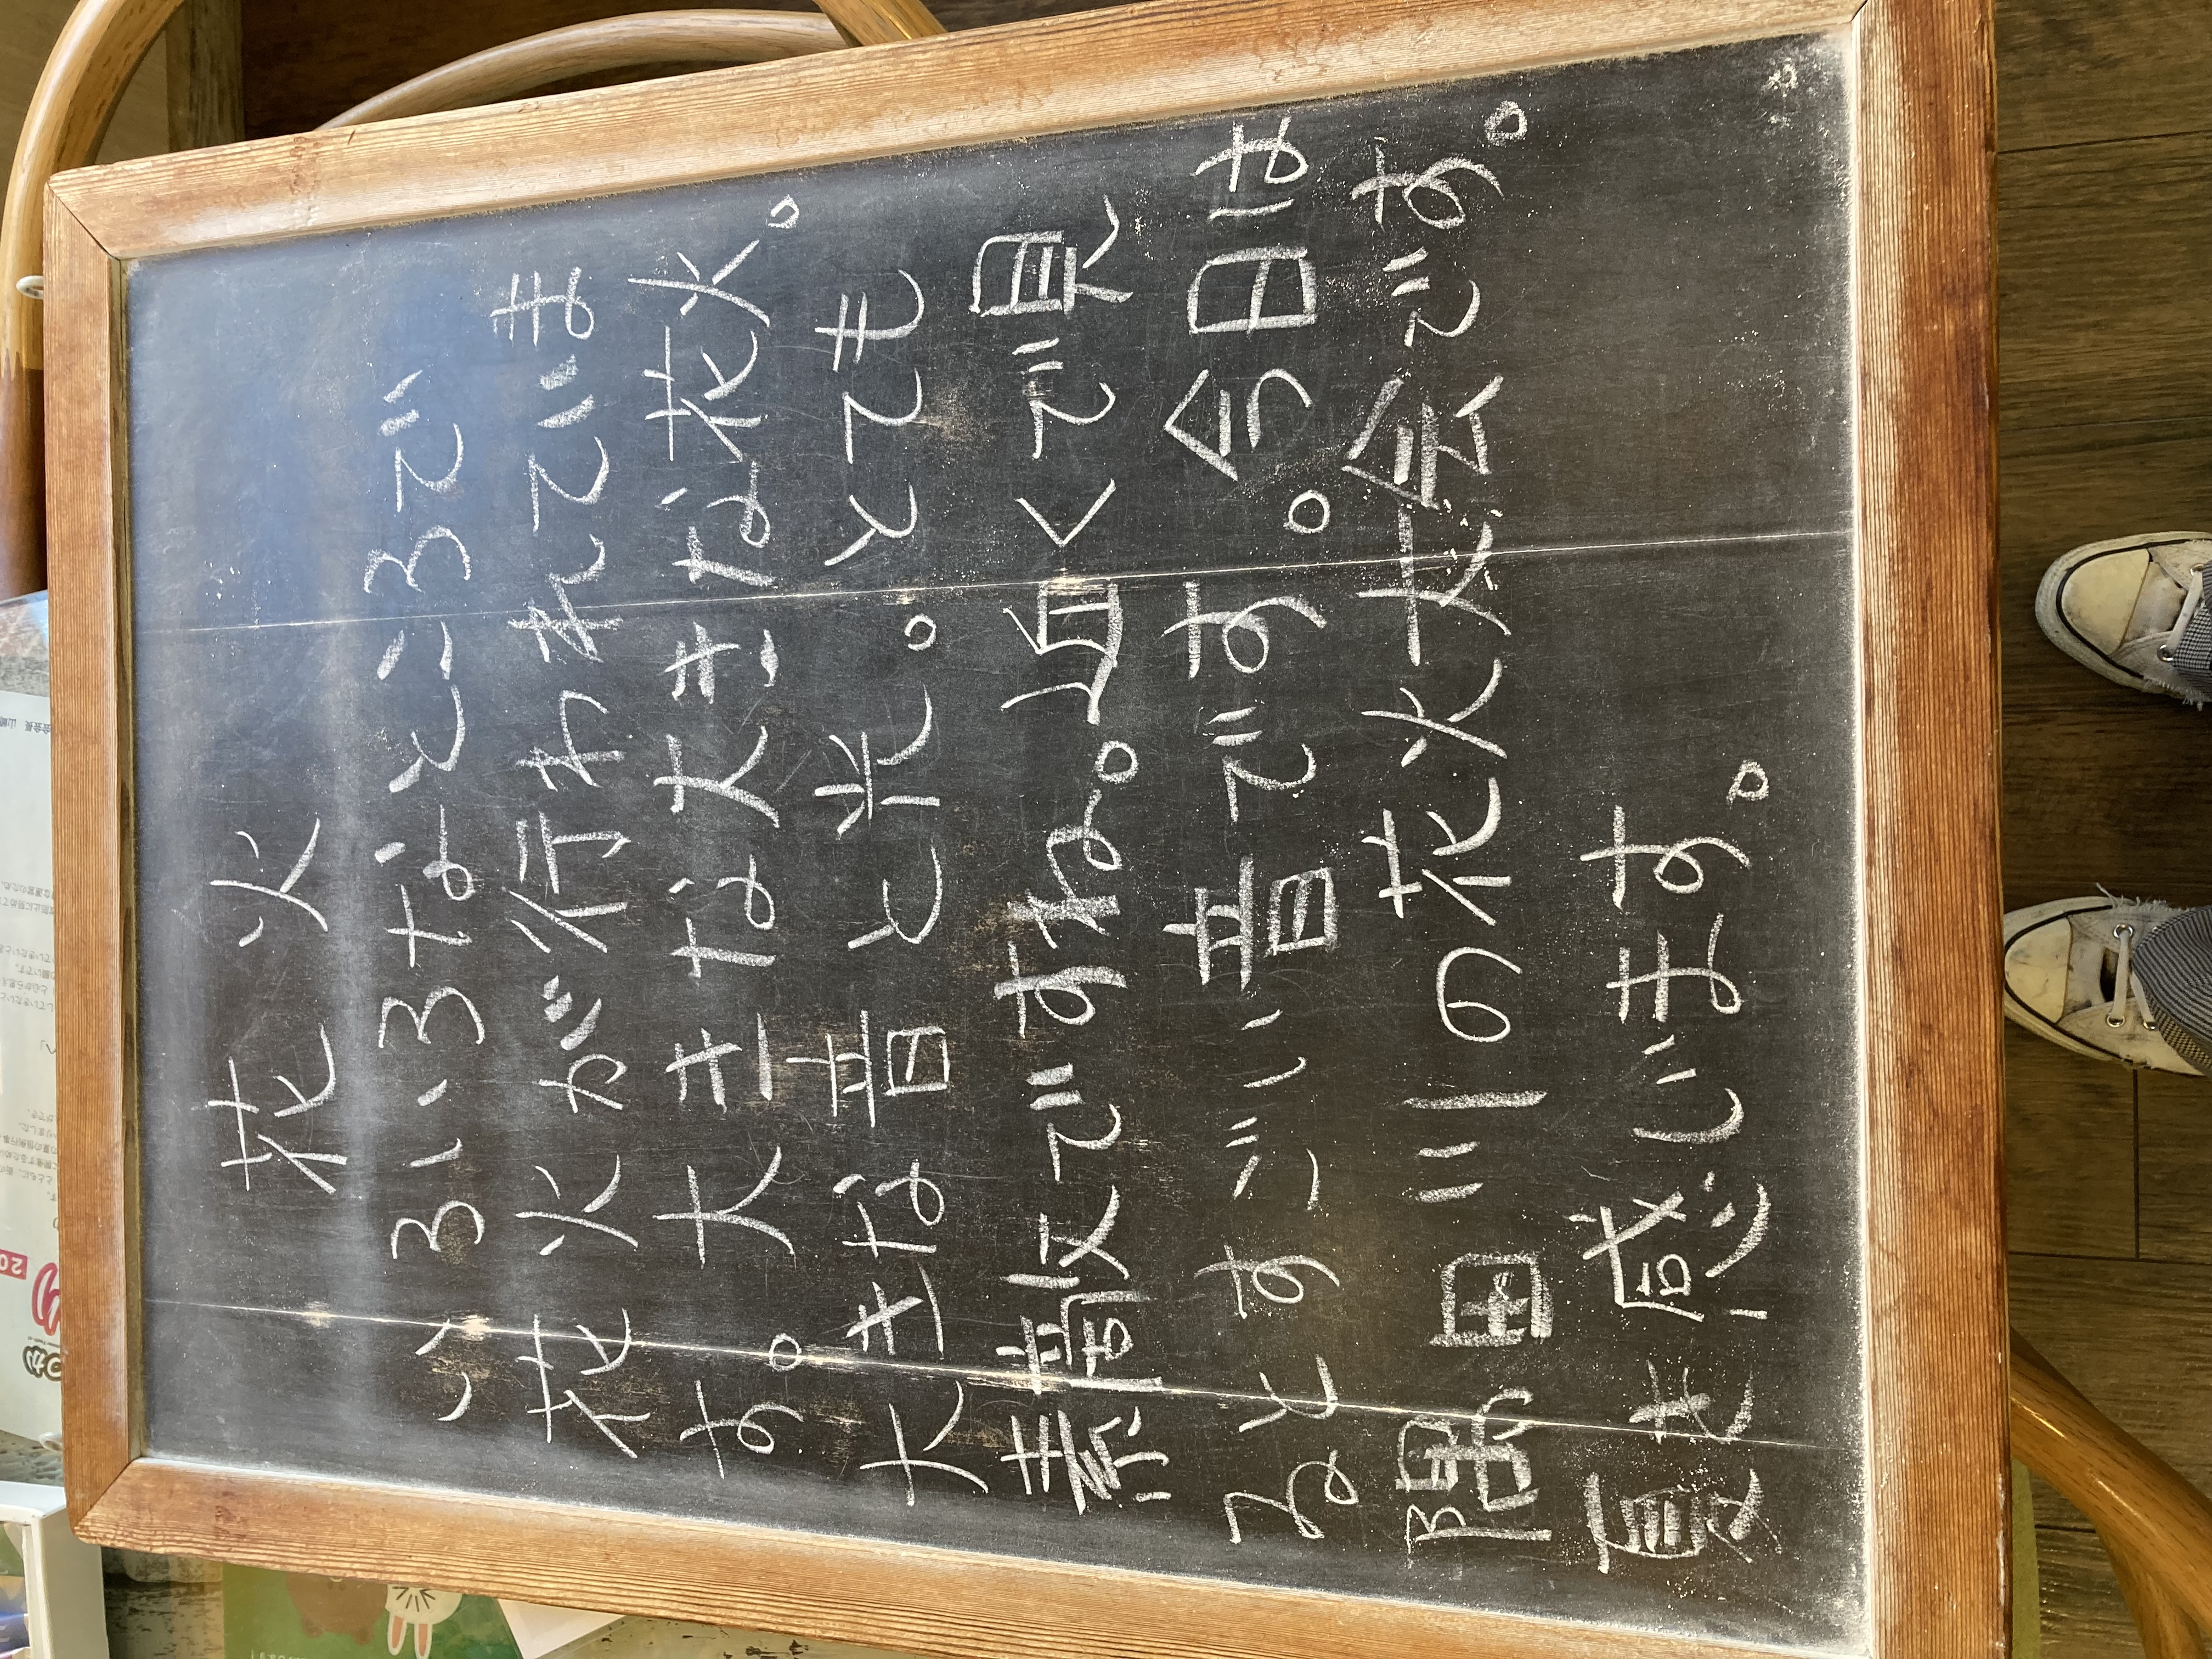 花火
いろいろなところで
花火が行われていま
す。大きな大きな花火。
大きな音と光。とても
素敵ですね。近くで見
るとすごい音です。今日は
隅田川の花火大会です。
夏を感じます。